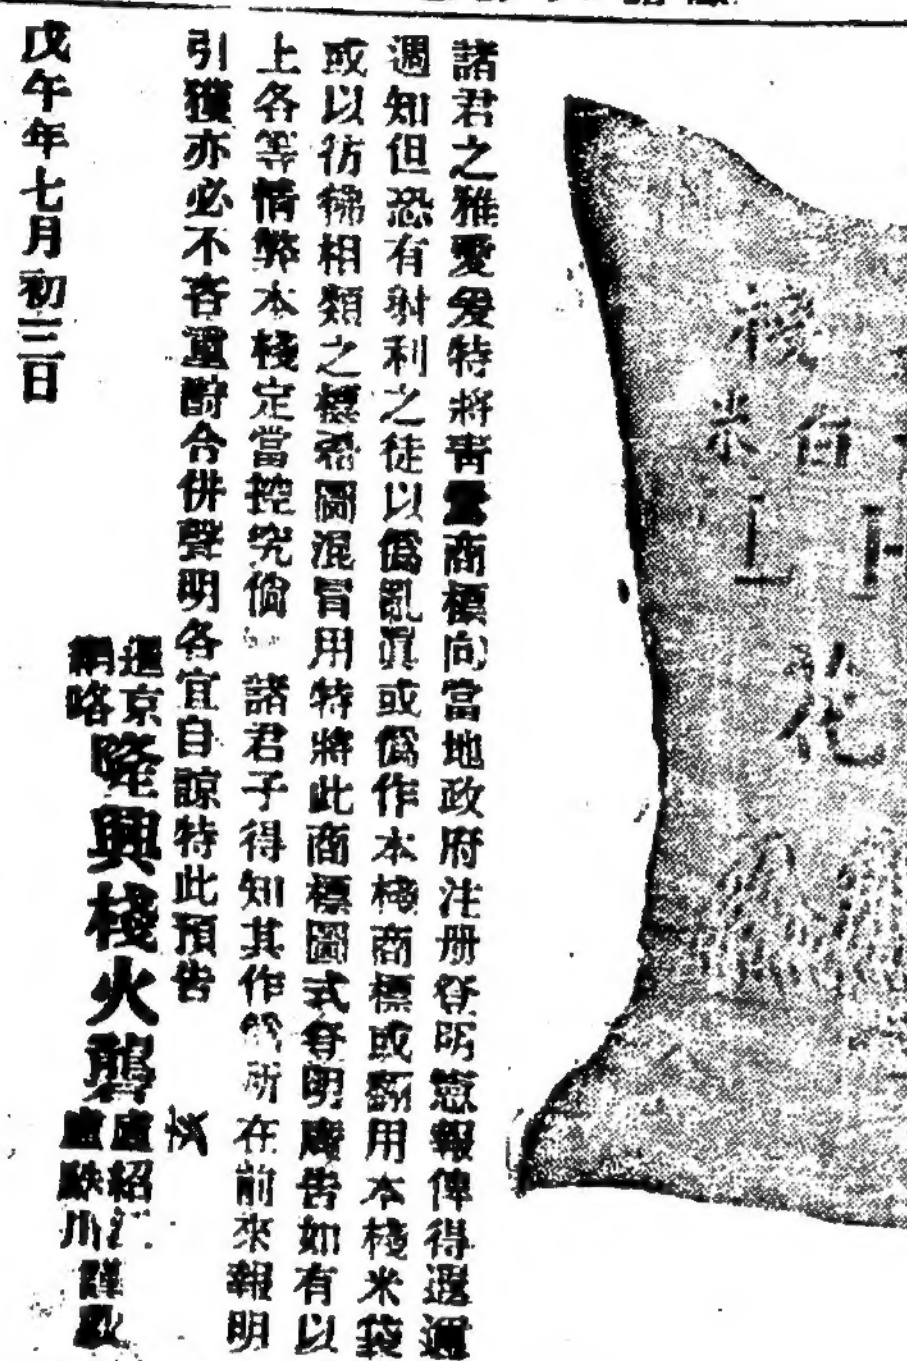 棧
白
米
花
諸君之雅愛爰特將靑雲商標向當地政府注册登明憲報俾得遐邇
週知但恐有射利之徒以僞亂眞或僞作本棧商標或翻用本棧米袋
或以彷彿相類之標希圖混冒用特將此商標圖式登明廣告如有以
上各等情弊本棧定當控究倘 諸君子得知其作僞所在前來報明
引獲亦必不吝重酧合倂聲明各宜自諒特此預告
暹京
隆興棧火礱
盧紹
盧 川
謹啟
戊午年七月初三日